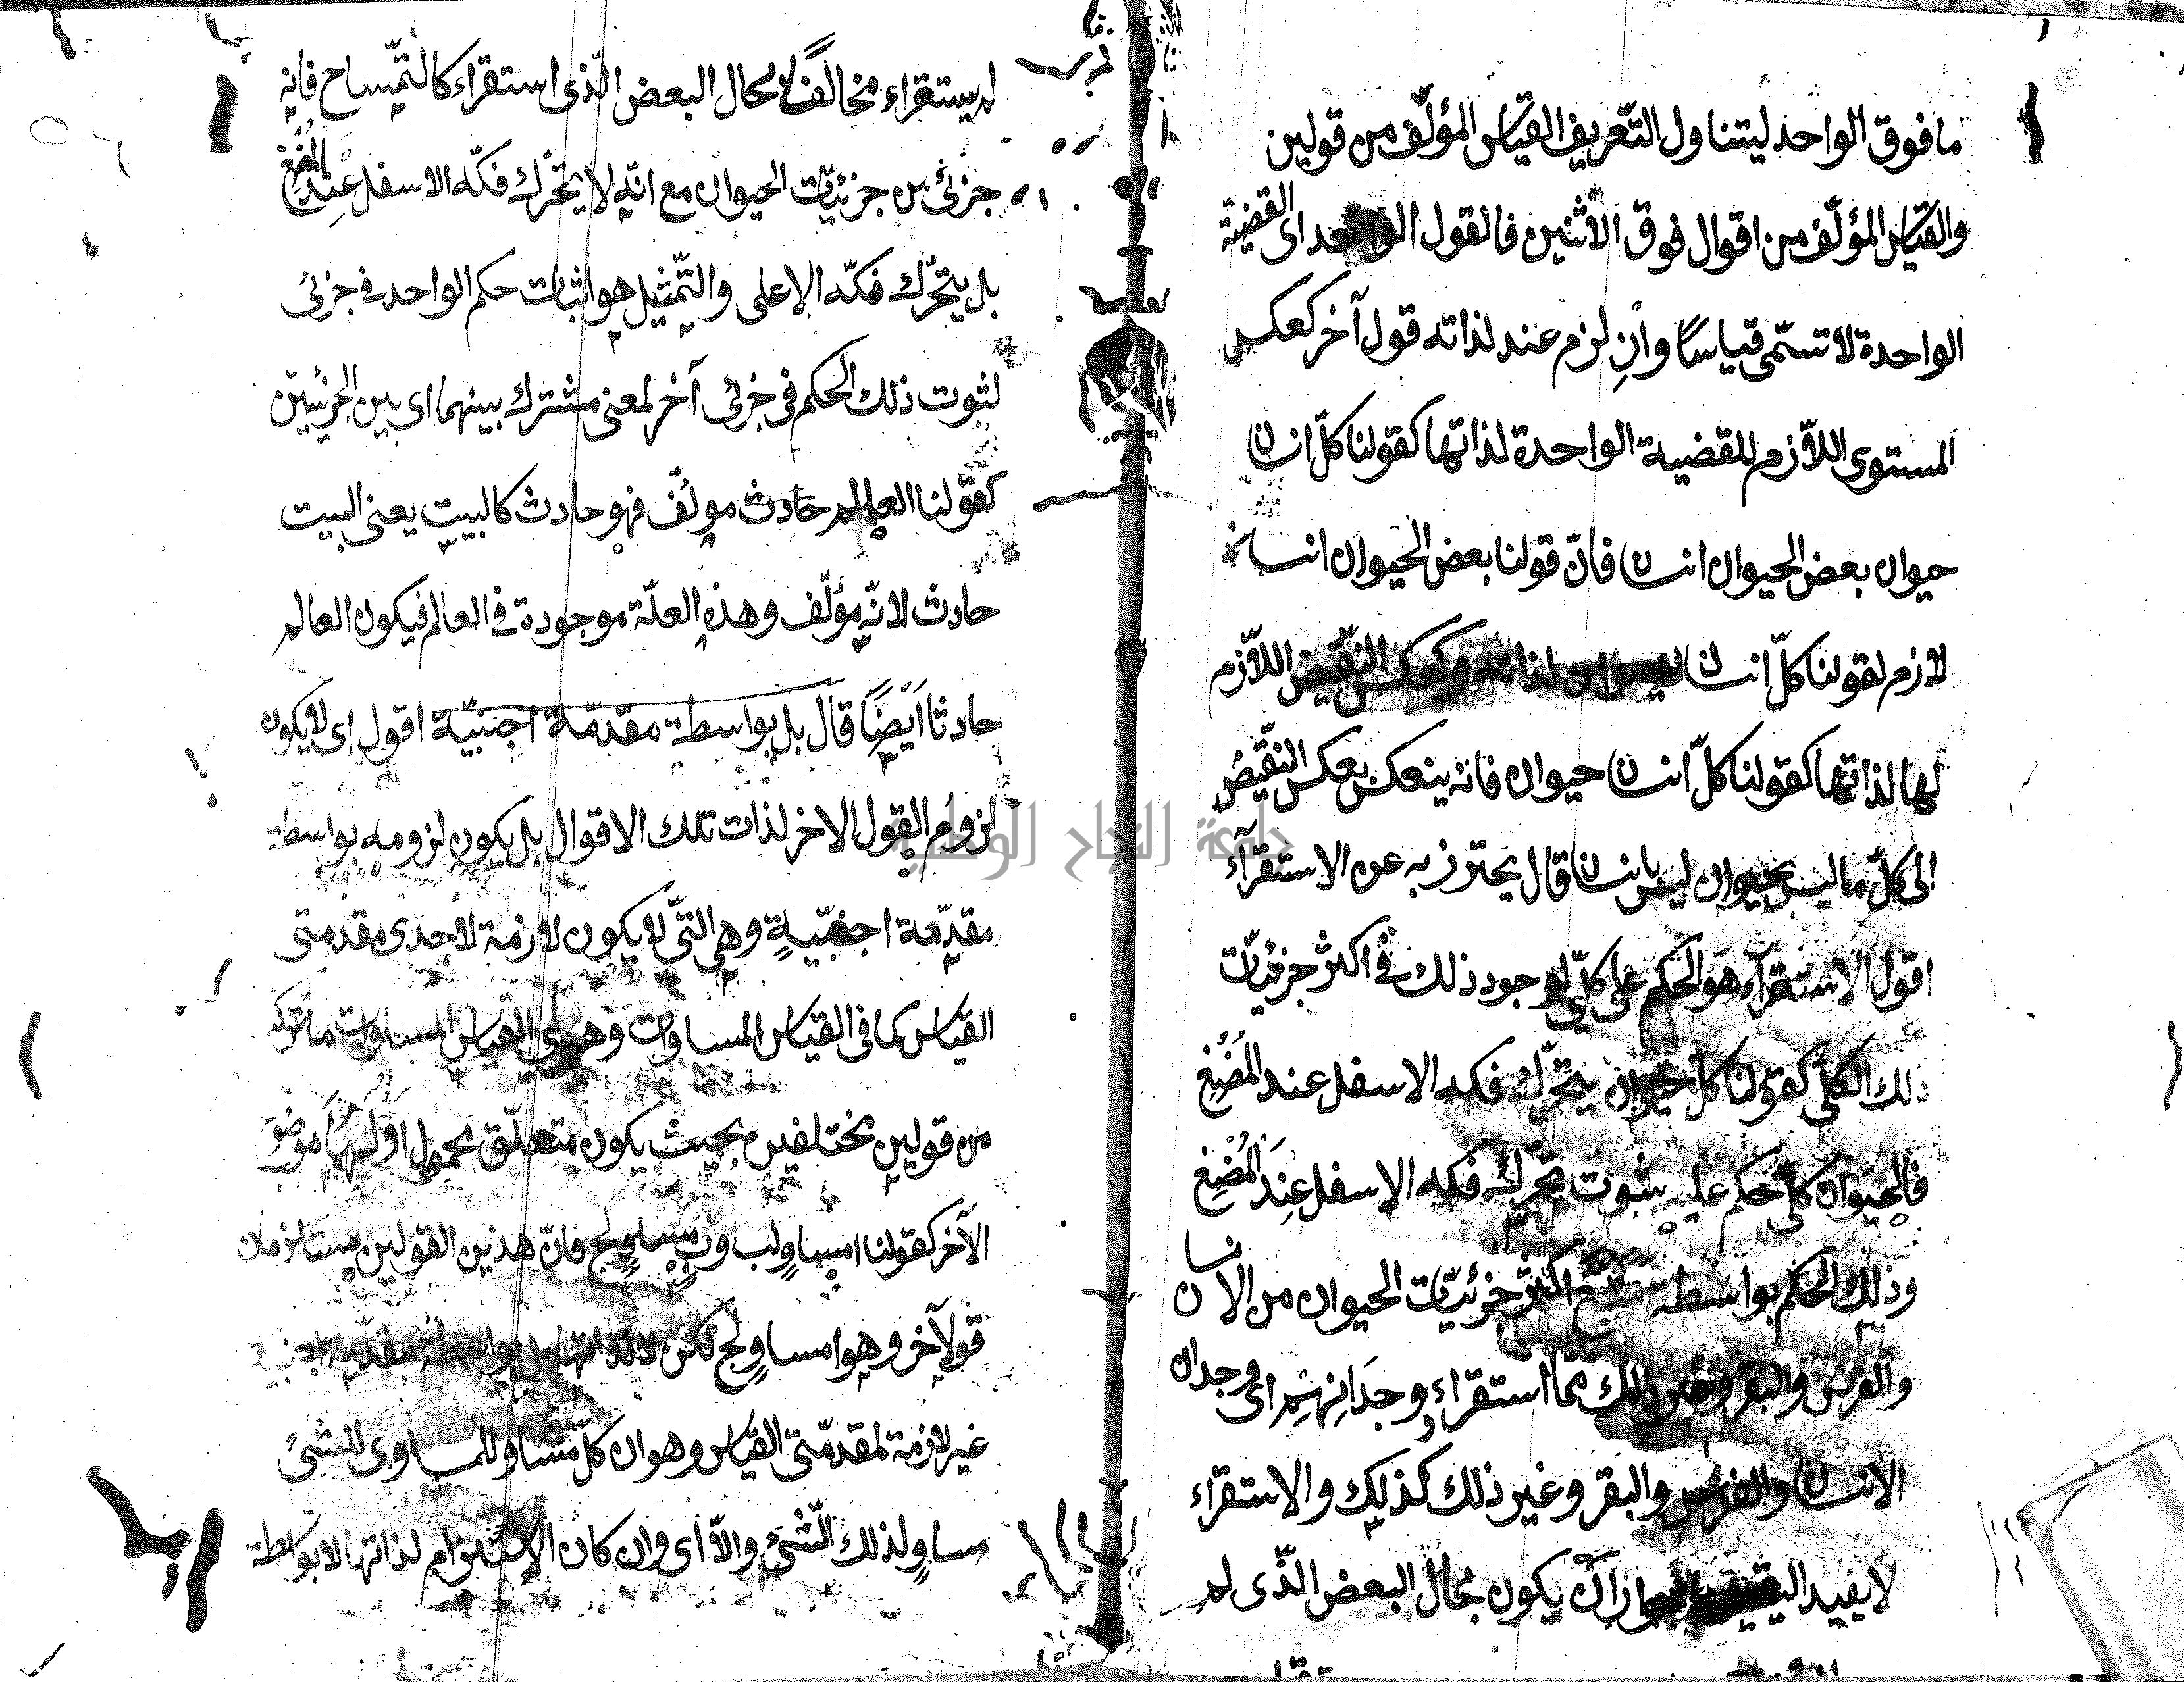 ما فوق الواحد ليتناول التّعريف القياس المؤلّف من قولين
والقياس المؤلّف من اقوال فوق الاثنين فالقول الواحد اى القضية
الواحدة لا تسّمى قياسًا وان لزم عند لذاته قول آخر كعكس
المستوى اللاّزم للقضية الواحدة لذاتها كقولنا كلّ انسان
حيوان بعض الحيوان انسان فانّ قولنا بعض الحيوان انسان
لازم لقولنا كلّ انسان حيوان لذاته وكعكس النّقيض اللاّزم
لها لذاتها كقولنا كلّ انسان حيوان فانه ينعكس بعكس النّقيض
الى كلّ ما ليس بحيوان ليس بانسان قال يحترز به عن الاستقرآء
اقول الاستقرآء هو الحكم على كلّى لوجود ذلك فى اكثر جزئيّات
ذلك الكلّى كقولنا كلّ حيوان يتحرّك فكه الاسفل عند المُضْغِ
فالحيوان كلّى حكم عليه بثبوت تحرّك فكه الاسفل عِندَ المُضْغِ
وذلك الحكم بواسطة تتبّع اكثر جزئيّات الحيوان من الانسان
والفرس والبقر وغير ذلك ممّا استقراء وجدانهم اى وجدان
الانسان والفرس والبقر وغير ذلك كذلك والاستقراء
لا يفيد اليقين ان يكون بحال البعض الذّى لم
لم يستقراء مخالفًا لحال البعض الّذى استقراء كالتمّساح فانه
جزئى من جزئيّات الحيوان مع انّه لا يتحرّك فكّه الاسفل عِندَ المُضْغِ
بل يتحرّك فكّه الاعلى والتّمثيل هو اثبات حكم الواحد فى جزئى
لثبوت ذلك الحكم فى جزئى آخر لمعنى مشترك بينهما اى بين الجزئيّين
كقولنا العالم حادث مولّف فهو حادث كالبيت يعنى البيت
حادث لانّه مؤلّف وهذه العلّة موجودة فى العالم فيكون العالم
حادثا اَيْضًا قال بل بواسطة مقدمّة اجنبيّة اقول اى لا يكون
لزومُ القول الاخر لذات تلك الاقوال بل يكون لزومه بواسطة
مقدّمة اجنبيّةٍ وهى التّى لا يكون لازمة لاحدى مقدمتى
القياس كما فى القياس المساوات وهو اى القياس المساوات ما تركب
من قولين مختلفين بحيث يكون متعلّق محمول اولهما موضوع
الآخر كقولنا ا مساوٍ لب وب مساوٍ لج فانّ هذين القولين مستلزمان
قولاً آخر وهو ا مساوٍ لج لكن لا لذاتهما بل بواسطة مقدّمة اجنبية
غير لازمة لمقدمّتى القياس وهو ان كلّ مساو للمساوى للشّئ
مساوٍ لذلك الشّئ والاّ اى وان كان الاستلزام لذاتها لا بواسطة
جامعة النجاح الوطنية